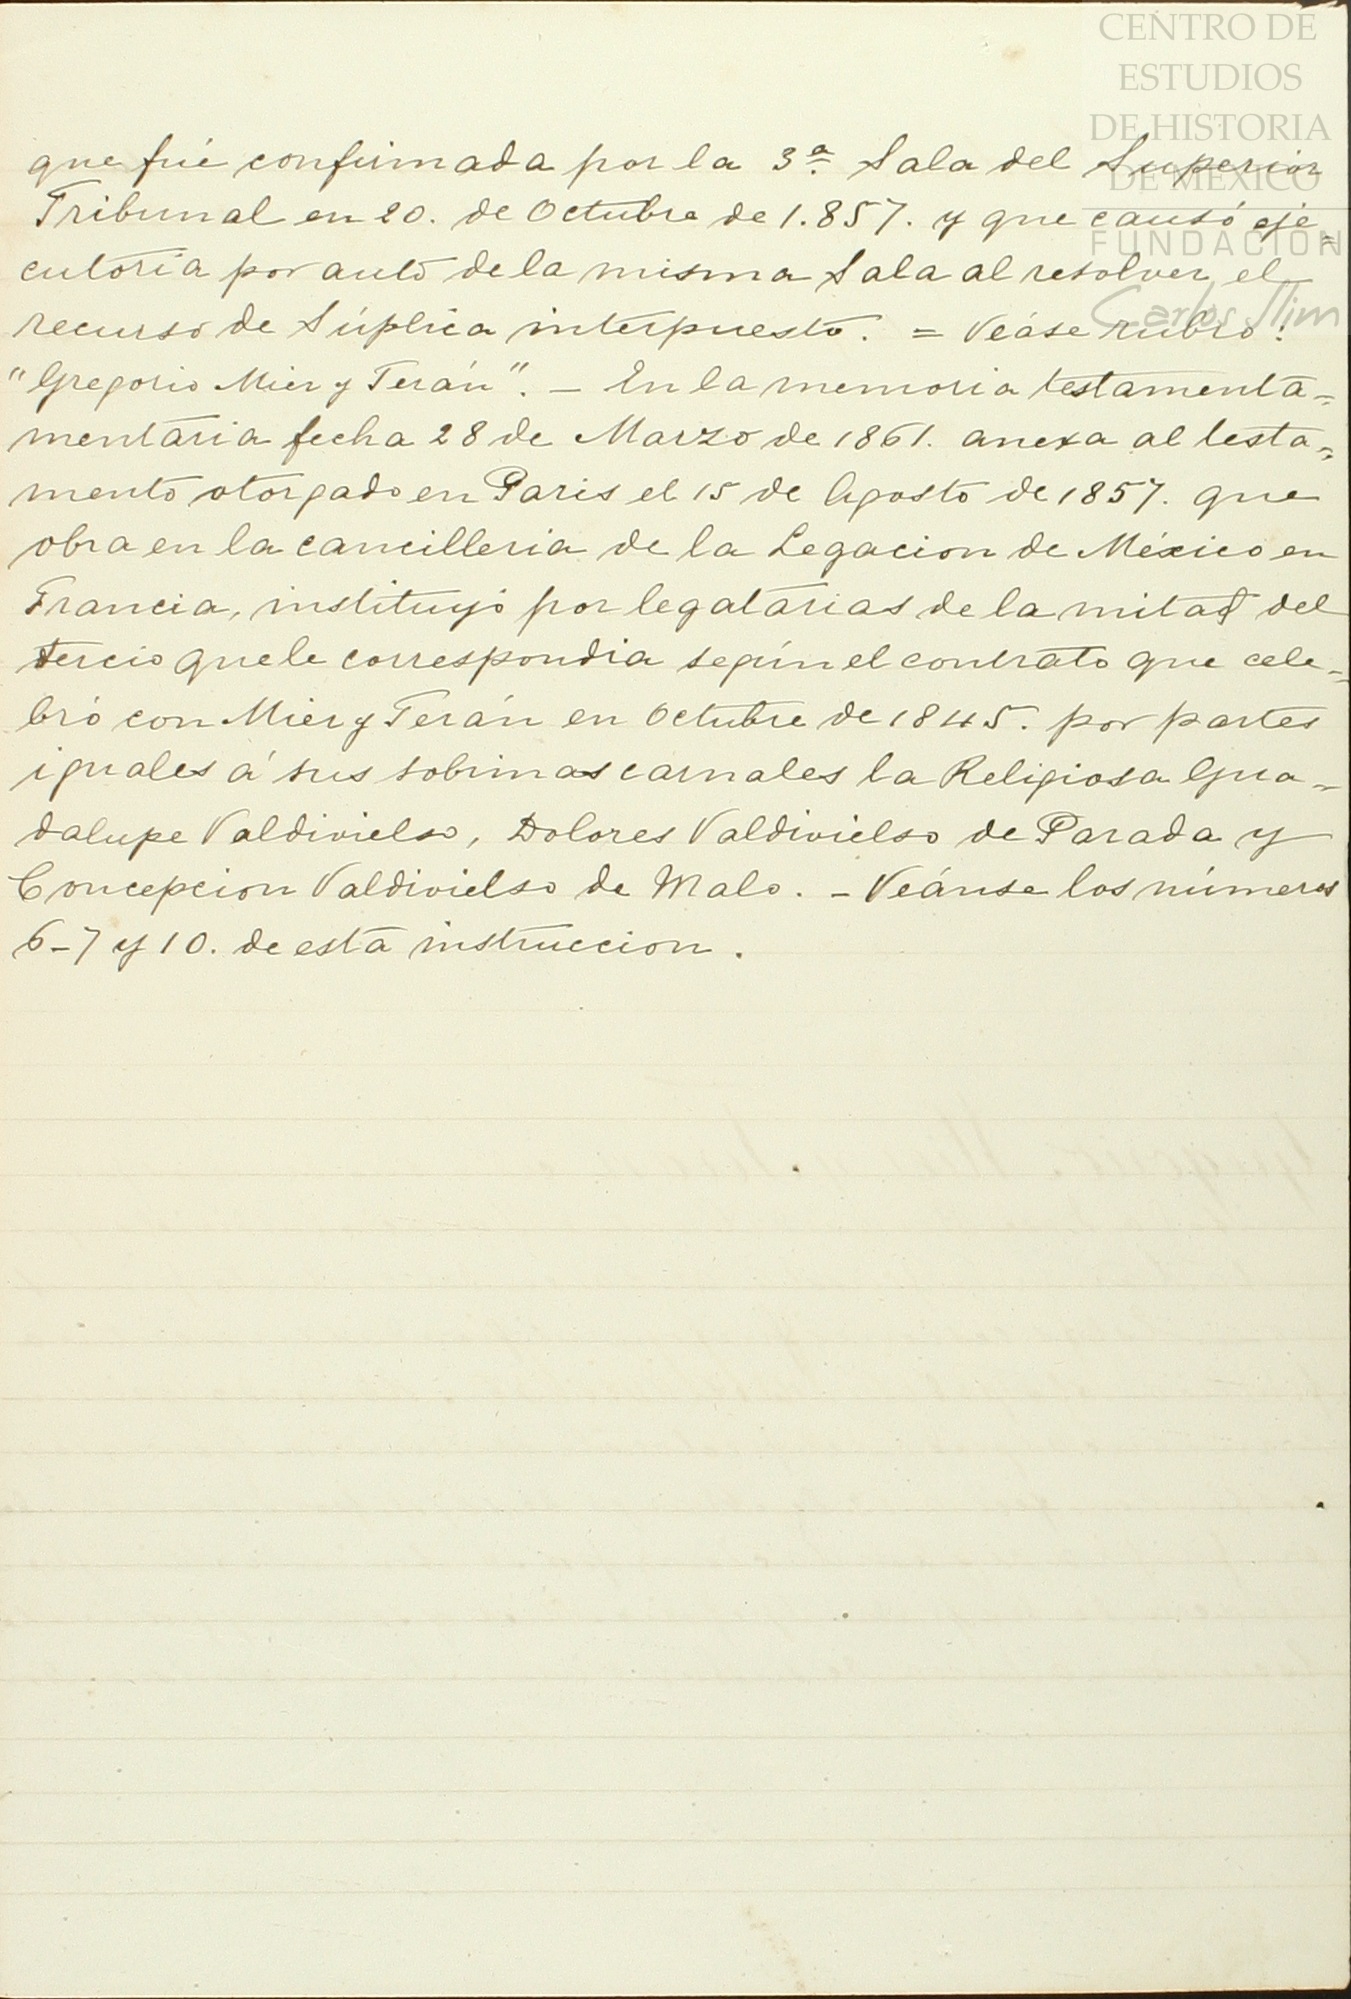 CENTRO DE
ESTUDIOS
DE HISTORIA
DE MÉXICO
FUNDACIÓN
Carlos Slim
que fué confirmada por la 3ª Sala del Superior
Tribunal en 20. de Octubre de 1.857. y que causó eje=
cutoria por auto de la misma Sala al resolver el
recurso de Súplica interpuesto. = Veáse rubro:
"Gregorio Mier y Terán". - En la memoria testamenta=
mentaria fecha 28 de Marzo de 1861. anexa al testa=
mento otorgado en Paris el 15 de Agosto de 1857. que
obra en la cancilleria de la Legacion de México en
Francia, instituyó por legatarias de la mitad del
tercio que le correspondia según el contrato que cele=
bró con Mier y Terán en Octubre de 1845. por partes
iguales á sus sobrinas carnales la Religiosa Gua=
dalupe Valdivielso, Dolores Valdivielso de Parada y
Concepcion Valdivielso de Malo. - Veánse los números
6-7 y 10. de esta instruccion.